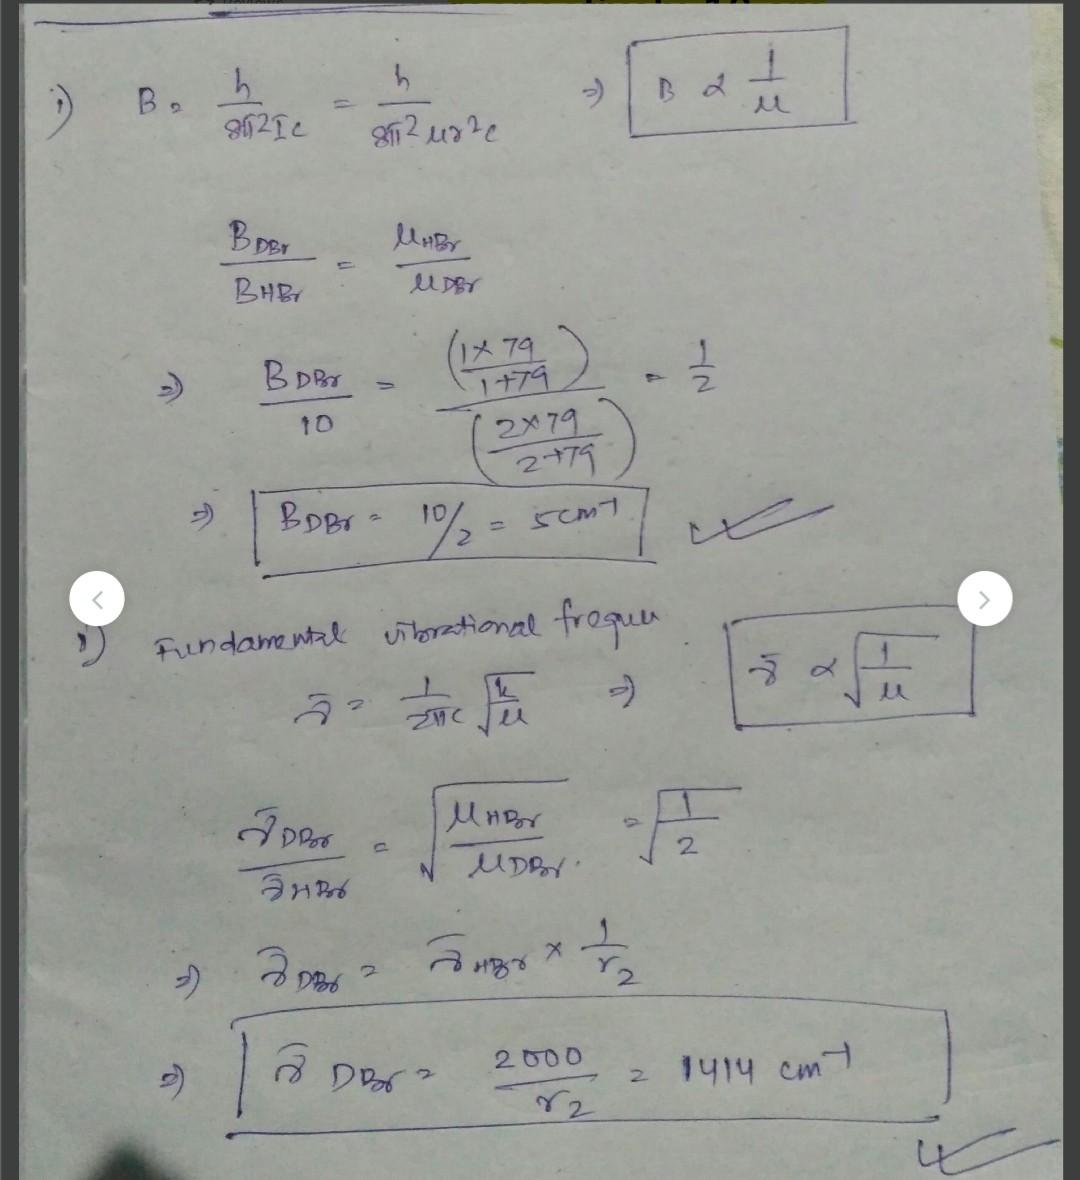 i) B = h/8π²Ic = h/8π²μr²c ⇒ B ∝ 1/μ
B DBr/B HBr = μ HBr/μ DBr
⇒ B DBr/10 = (1×79/1+79)/(2×79/2+79) = 1/2
⇒ B DBr = 10/2 = 5 cm⁻¹
Fundamental vibrational frequ
ν̄ = 1/2πc √k/μ ⇒ ν̄ ∝ √1/μ
ν̄ DBr/ν̄ HBr = √μ HBr/μ DBr. = √1/2
⇒ ν̄ DBr = ν̄ HBr × 1/√2
⇒ ν̄ DBr = 2000/√2 = 1414 cm⁻¹